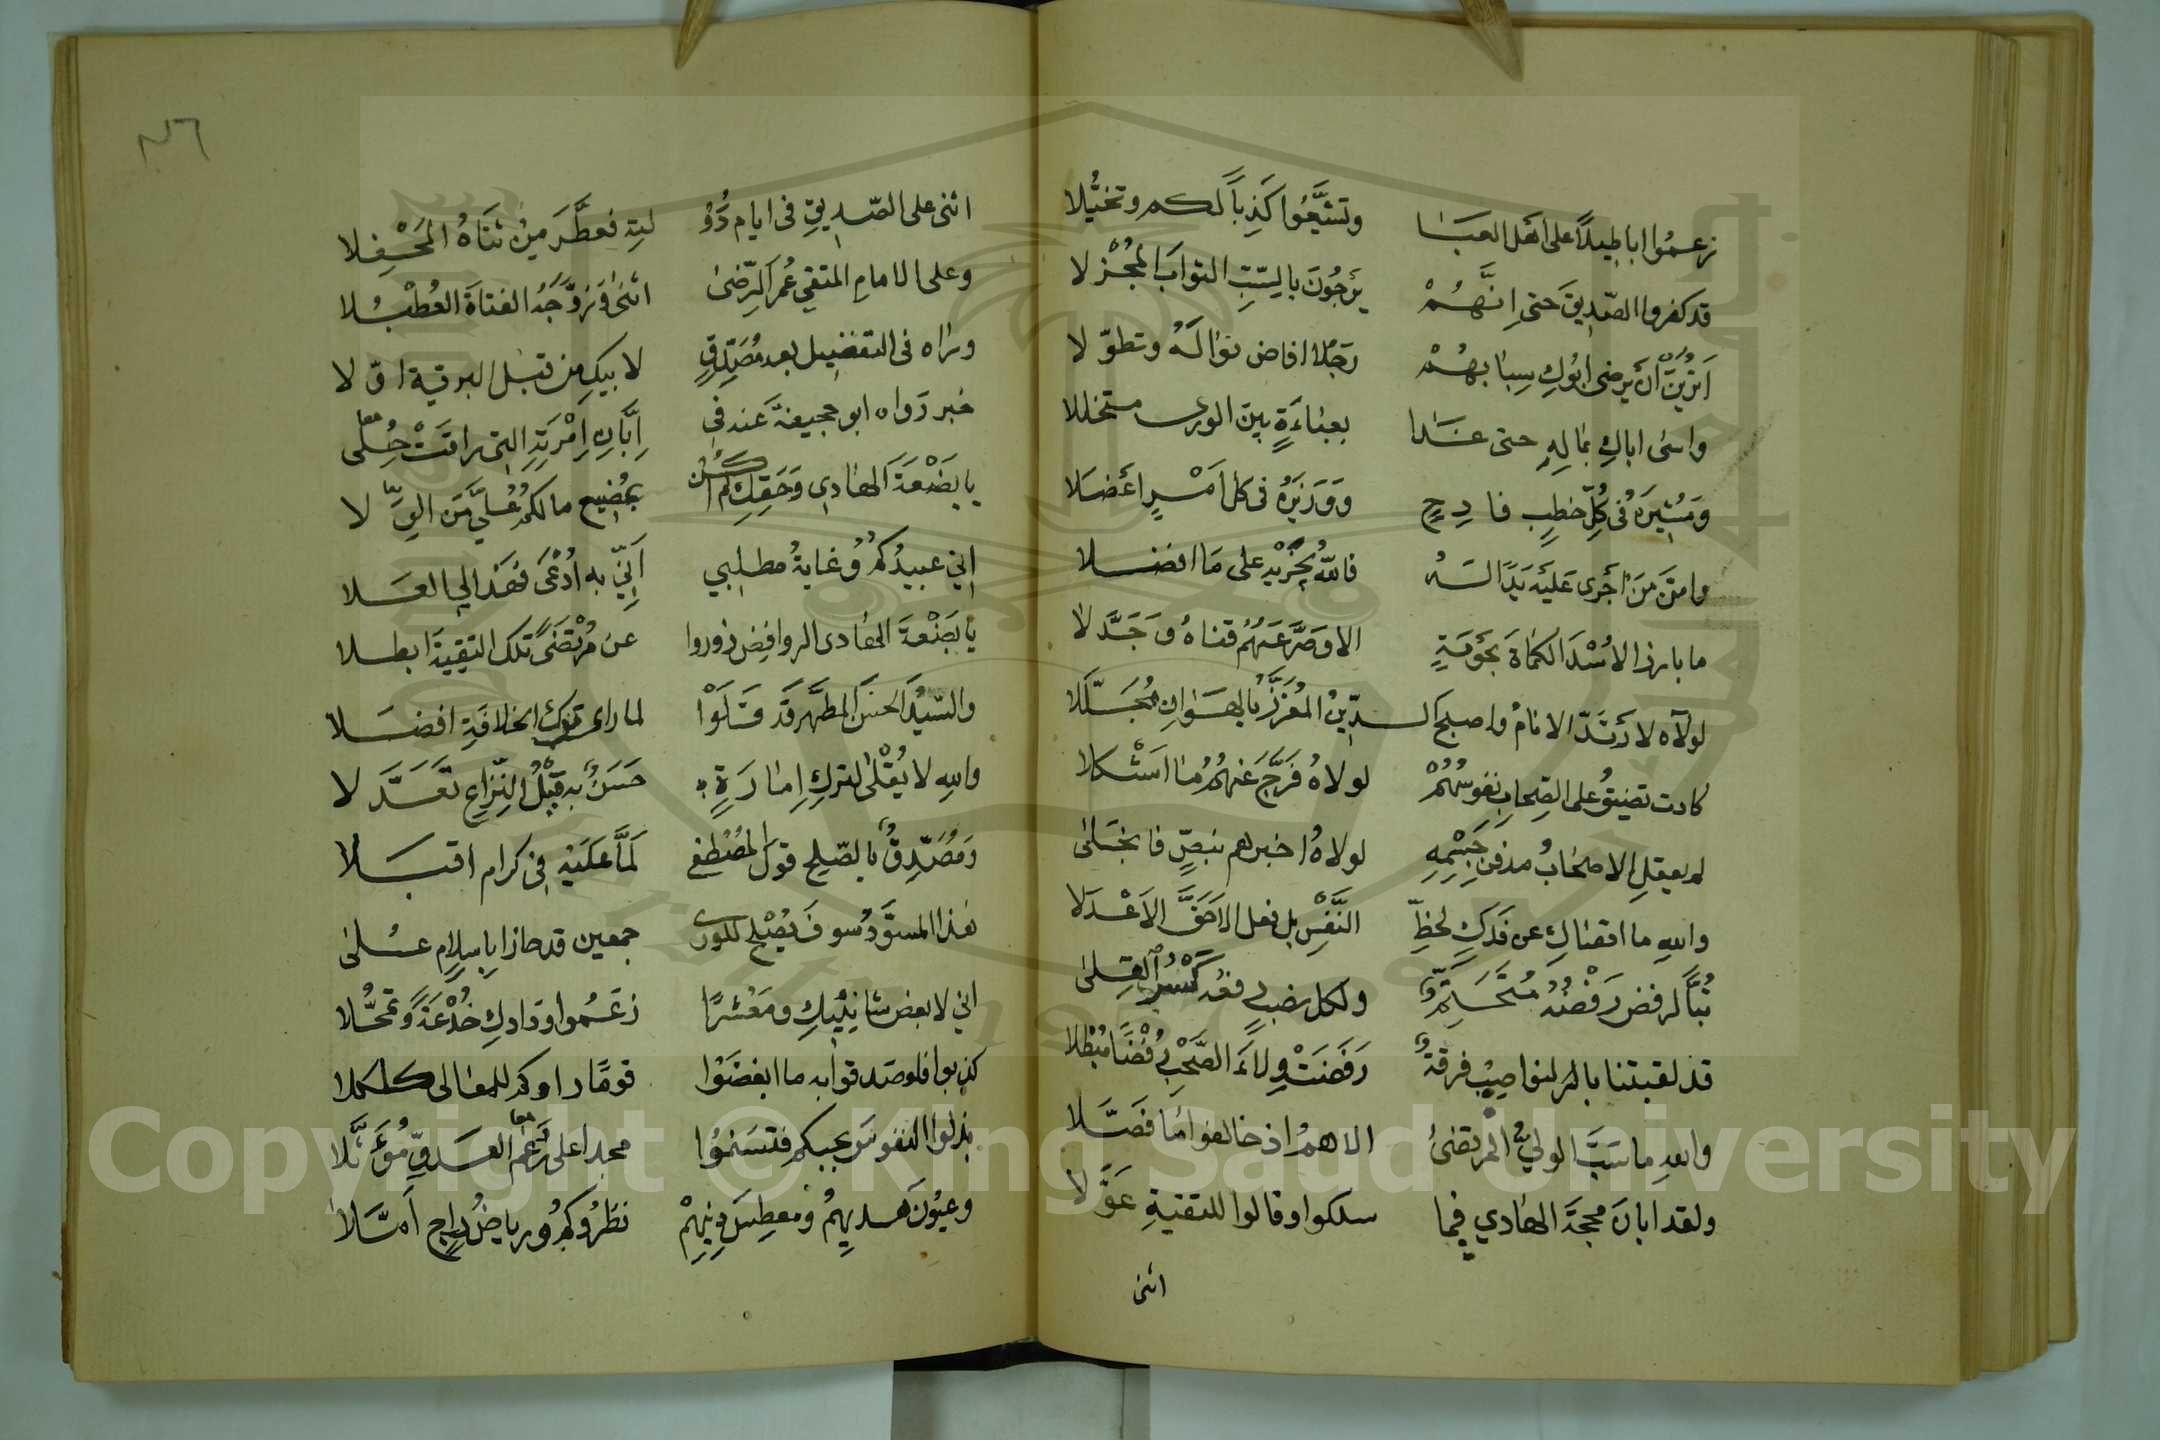 زعموا اباطيلا على اهل العبا وتشيعوا كذبا لكم وتخيلا
قد كفروا الصديق حتى انهم يرجون بالسب الثواب المجزلا
اترين ان يرضى ابوك سبابهم رجلا افاض نواله وتطولا
واسى اباك بماله حتى غدا بعباءة بين الورى متخللا
ومشيره في كل خطب فادح ووزيره في كل امر اعضلا
وامن من اجرى عليه يدا له فالله يجزيه على ما افضلا
ما بارز الاسد الكماة بحومة الا وصرعهم قناه وجدلا
لولاه لارتد الانام واصبح الدين المعزز بالهوان مجللا
كادت تضيق على الصحاب نفوسهم لولاه فرج عنهم ما اشكلا
لم يعقل الاصحاب مدفن جسمه لولاه اخبرهم بنص فانجلى
والله ما اقصاك عن فدك لحظ النفس بل فعل الاحق الاعدلا
تبا لرفض رفضه ولكل نصب فقد القلى
قد لقبتنا بالنواصب فرقة رفضت ولاء الصحب رفضا مبطلا
وابعد ما سب الولي المرتضى الاهم اذ خالفوا ما فصلا
ولقد ابان محجة الهادي فما سلكوا وقالوا للتقية عولا
اثنى
٢٦
اثنى على الصديق في ايام دو لته فعطر من ثناه المحفلا
وعلى الامام المتقي عمر الرضى اثنى وزوجه الفتاة العطبلا
وراه في التفضيل بعد مصدق لابيك من قبل البرية اولا
خبر رواه ابو جحيفة عند في ابان امرته التي راقت حلى
يا بضعة الهادي وحقك لم اكن بمضيع مالكم علي من الولا
اني عبيدكم وغاية مطلبي اني به ادعى فهذا لي العلا
يا بضعة الهادي الروافض زوروا عن مرتضى تلك التقية ابطلا
والسيد الحسن المطهر قد قلوا لما راى ترك الخلافة افضلا
والله لا يقلى لترك امارة حسن به قبل النزاع تعدلا
ومصدق بالصلح قول المصطفى لما عليه في كرام اقبلا
هذا المسود سوف يصلح للورى جمعين قد حازا باسلام على
اني لابغض شانئيك ومعشرا زعموا ودادك خدعة وتمحلا
كذبوا فلو صدقوا به ما ابغضوا قوما راوكم للمعالي كلكلا
بذلوا النفوس بحبكم فتسنموا مجدا على رغم العدو مؤثلا
وعيون هديهم ومعطس دينهم نظروكم ورياض داج امثلا
Copyright © King Saud University